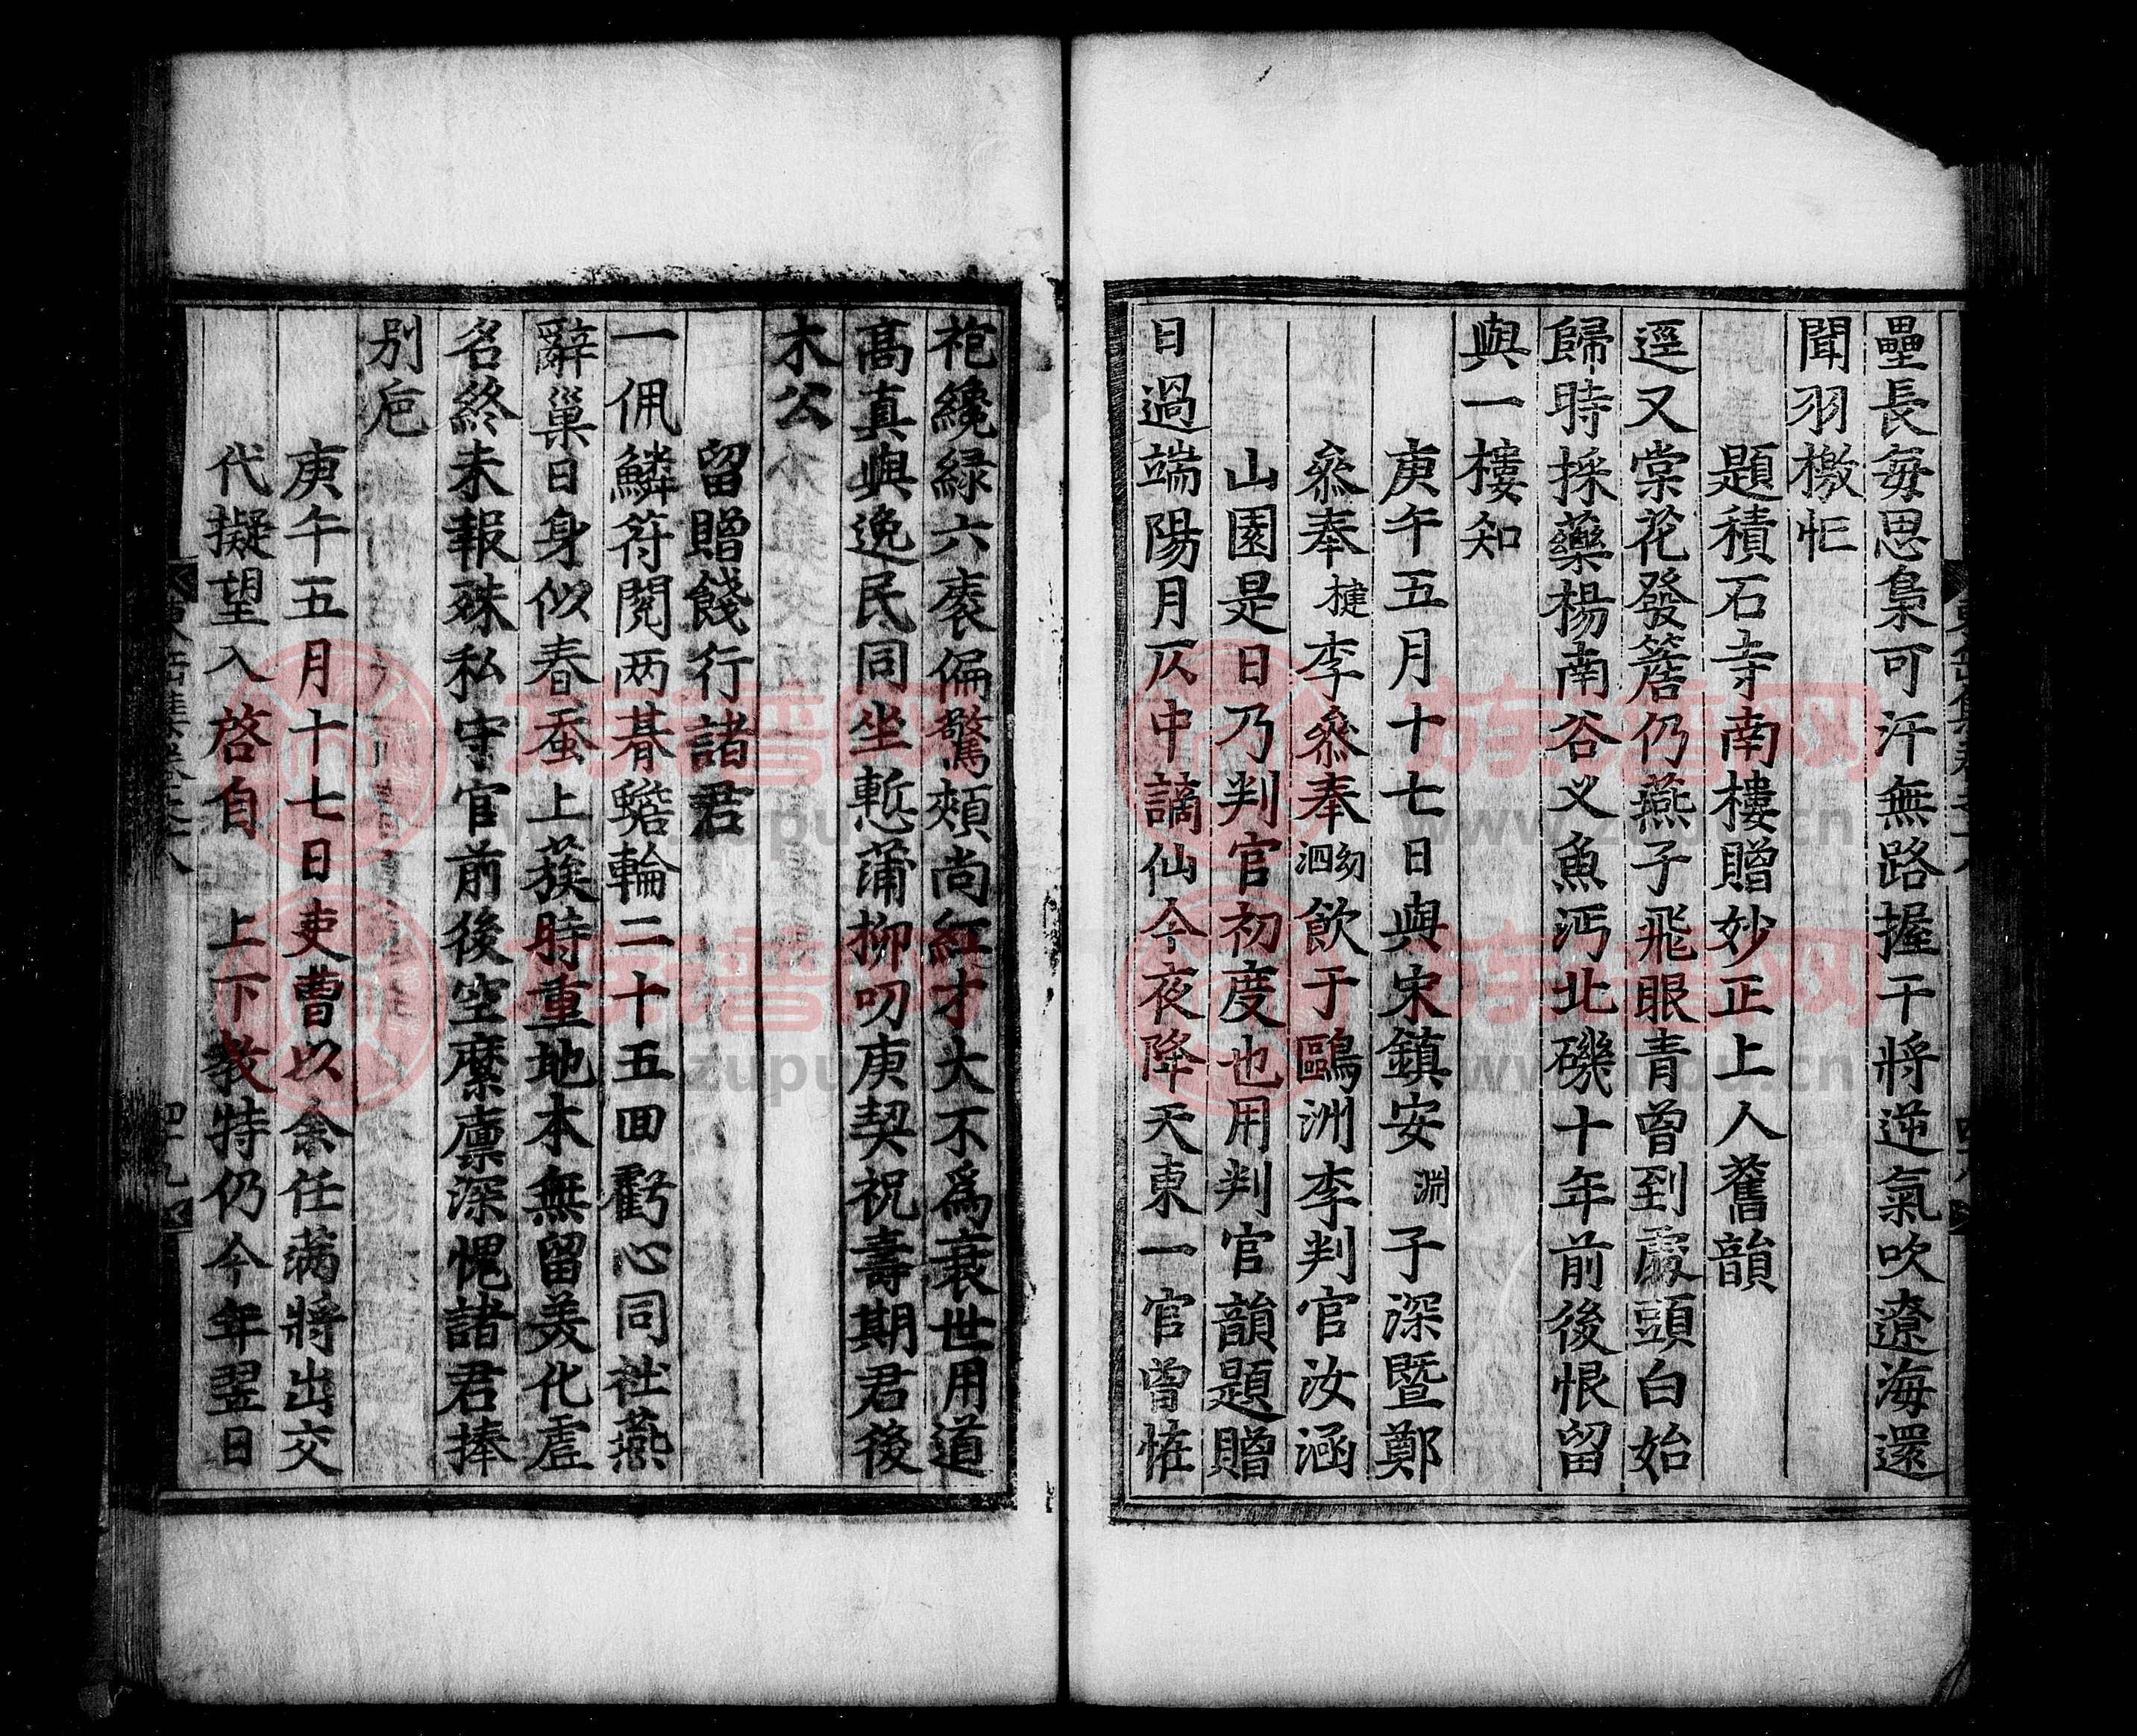 壘長每思梟可汗無路握干將逆氣吹遼海還
聞羽檄忙
題積石寺南樓贈妙正上人舊韻
逕又棠花發簷仍燕子飛眼青曾到處頭白始
歸時採藥楊南谷乂魚沔北磯十年前後恨留
與一樓知
庚午五月十七日與宋鎮安 淵 子深暨鄭
叅奉 揵 李叅奉 泗幼 飲于鷗洲李判官汝涵
山園是日乃判官初度也用判官韻題贈
日過端陽月仄中謫仙今夜降天東一官曾惟
袍纔緑六袠偏驚頰尚紅才大不爲衰世用道
髙真與逸民同坐慙蒲柳叨庚契祝壽期君後
木公
留贈餞行諸君
一佩鱗符閱两朞蟾輪二十五回虧心同社燕
辭巢日身似春蚕上蔟時重地本無留美化虗
名終未報殊私守官前後空縻廪深愧諸君捧
别巵
庚午五月十七日吏曹以余任满將出交
代擬望入啓自 上下教特仍今年翌日
族譜网
www.zupu.cn